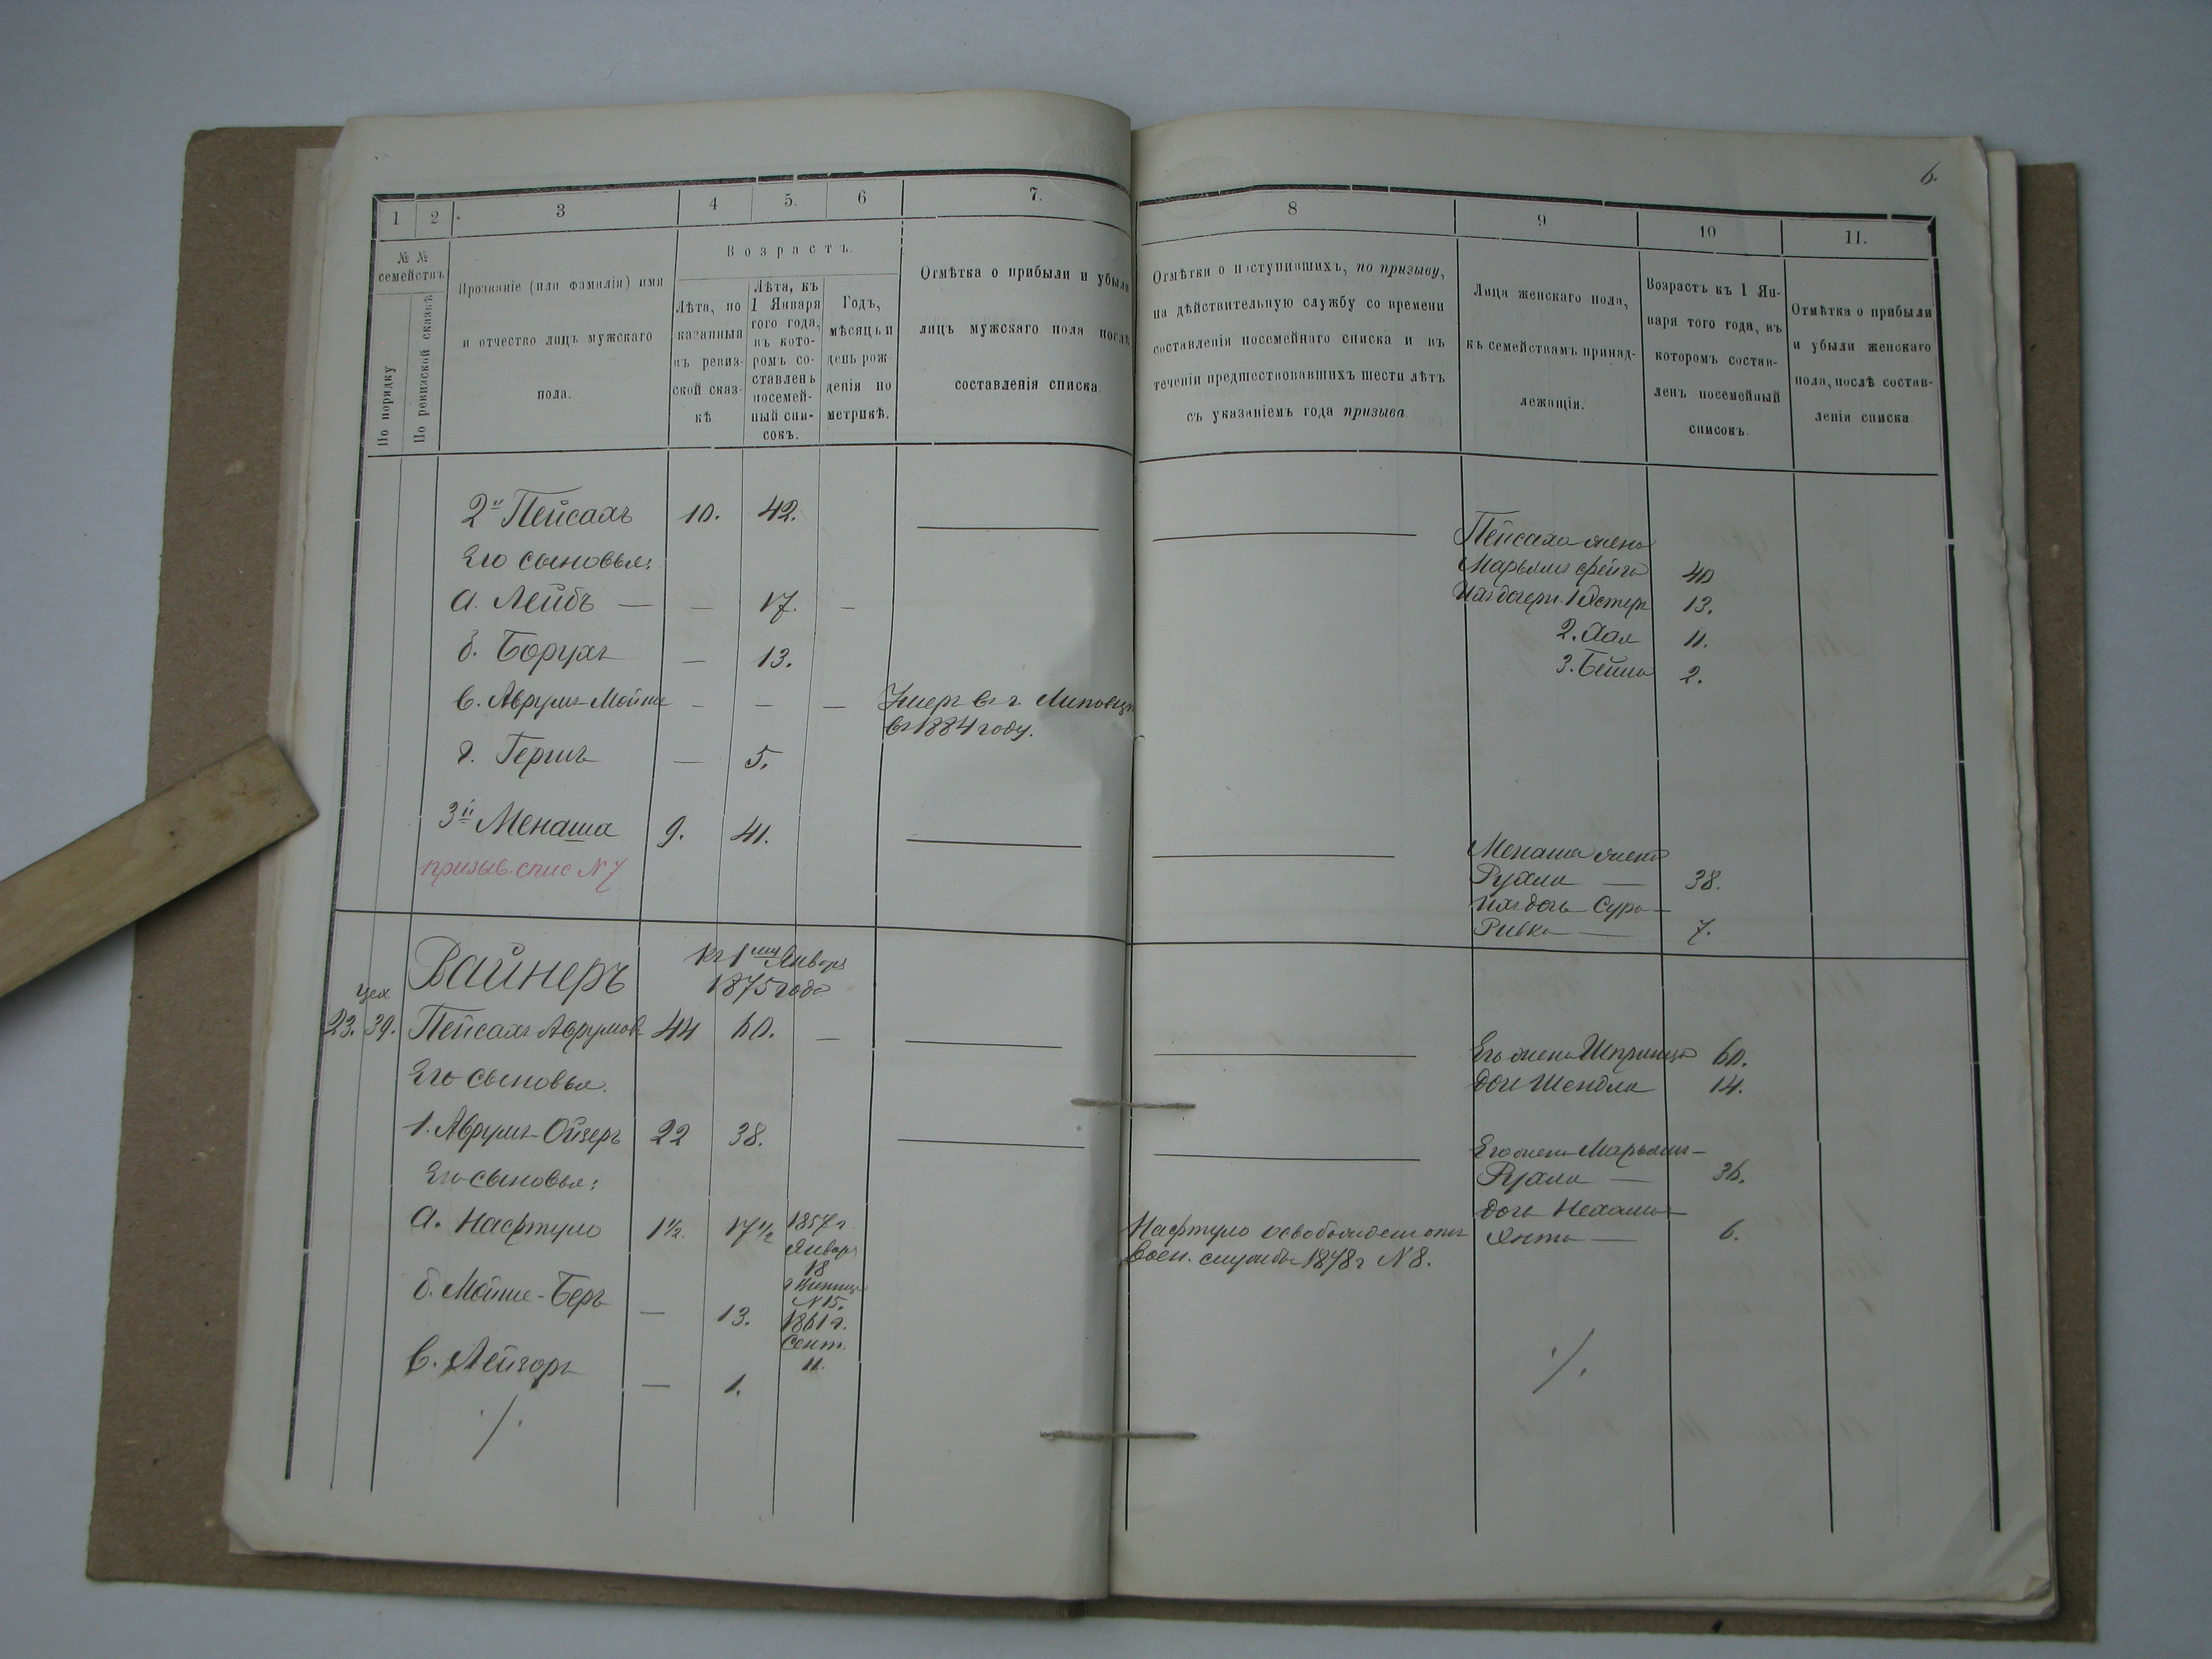 6.
1 2 3 4 5. 6 7. 8 9 10 11.
№ № семействъ
По порядку
По ревизской сказкѣ
Прозваніе (или фамилія) имя
и отчество лицъ мужскаго
пола.
Возрастъ.
Лѣта, по
казанныя
въ ревиз-
ской сказ-
кѣ.
Лѣта, къ
1 Января
того года,
въ кото-
ромъ со-
ставленъ
посемей-
ный спи-
сокъ.
Годъ,
мѣсяцъ и
день рож
денія по
метрикѣ.
Отмѣтка о прибыли и убыли
лицъ мужскаго пола послѣ
составленія списка.
Отмѣтки о поступившихъ, по призыву,
на дѣйствительную службу со времени
составленія посемейнаго списка и въ
теченіи предшествовавшихъ шести лѣтъ
съ указаніемъ года призыва
Лица женскаго пола,
къ семействамъ принад-
лежащія.
Возрастъ къ 1 Ян-
варя того года, въ
которомъ состав-
ленъ посемейный
списокъ.
Отмѣтка о прибыли
и убыли женскаго
пола, послѣ состав-
ленія списка.
2й Пейсахъ 10. 42.
Его сыновья:
а. Лейбъ — — 17. —
б. Борухъ — 13.
в. Аврумъ-Мойше — — — Умеръ въ г. Липовцѣ
въ 1884 году.
г. Гершъ — 5.
3й Менаша 9. 41.
призыв. спис N 7
Пейсаха жена
Марьямъ Фейга 40
Ихъ дочери: 1 Эстеръ 13.
2. 11.
3. Бейла 2.
Менаша жена
Рухля — 38.
Ихъ дочь Сура-
Ривка — 7.
Вайнеръ
Къ 1му Января
1875 года
цех
23. 39. Пейсахъ Аврумов 44 60. —
Его сыновья.
1. Аврумъ-Ойзеръ 22 38.
Его сыновья:
а. Нафтуло 1½. 17½ 1857 г.
Января
18
г Винница
N 15.
б. Мойше-Беръ — 13. 1861 г.
Сент.
11.
в. Лейзоръ — 1.
./.
Нафтуло освобожденъ отъ
воен. службы 1878 г N 8.
Его жена Шпринца 60.
дочь Шендля 14.
Его жена Марьямъ-
Рухля — 36.
дочь Нехама-
Янта — 6.
./.